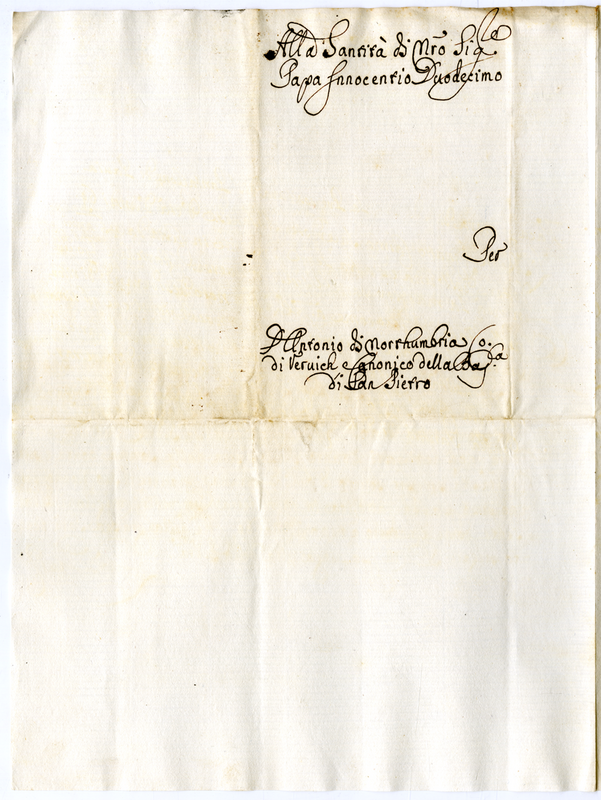 Alla Santità di Nro Sigre
Papa Innocentio Duodecimo
Per
D. Antonio di Northumbria Co.
di Vervich e Canonico della Basca
di San Pietro